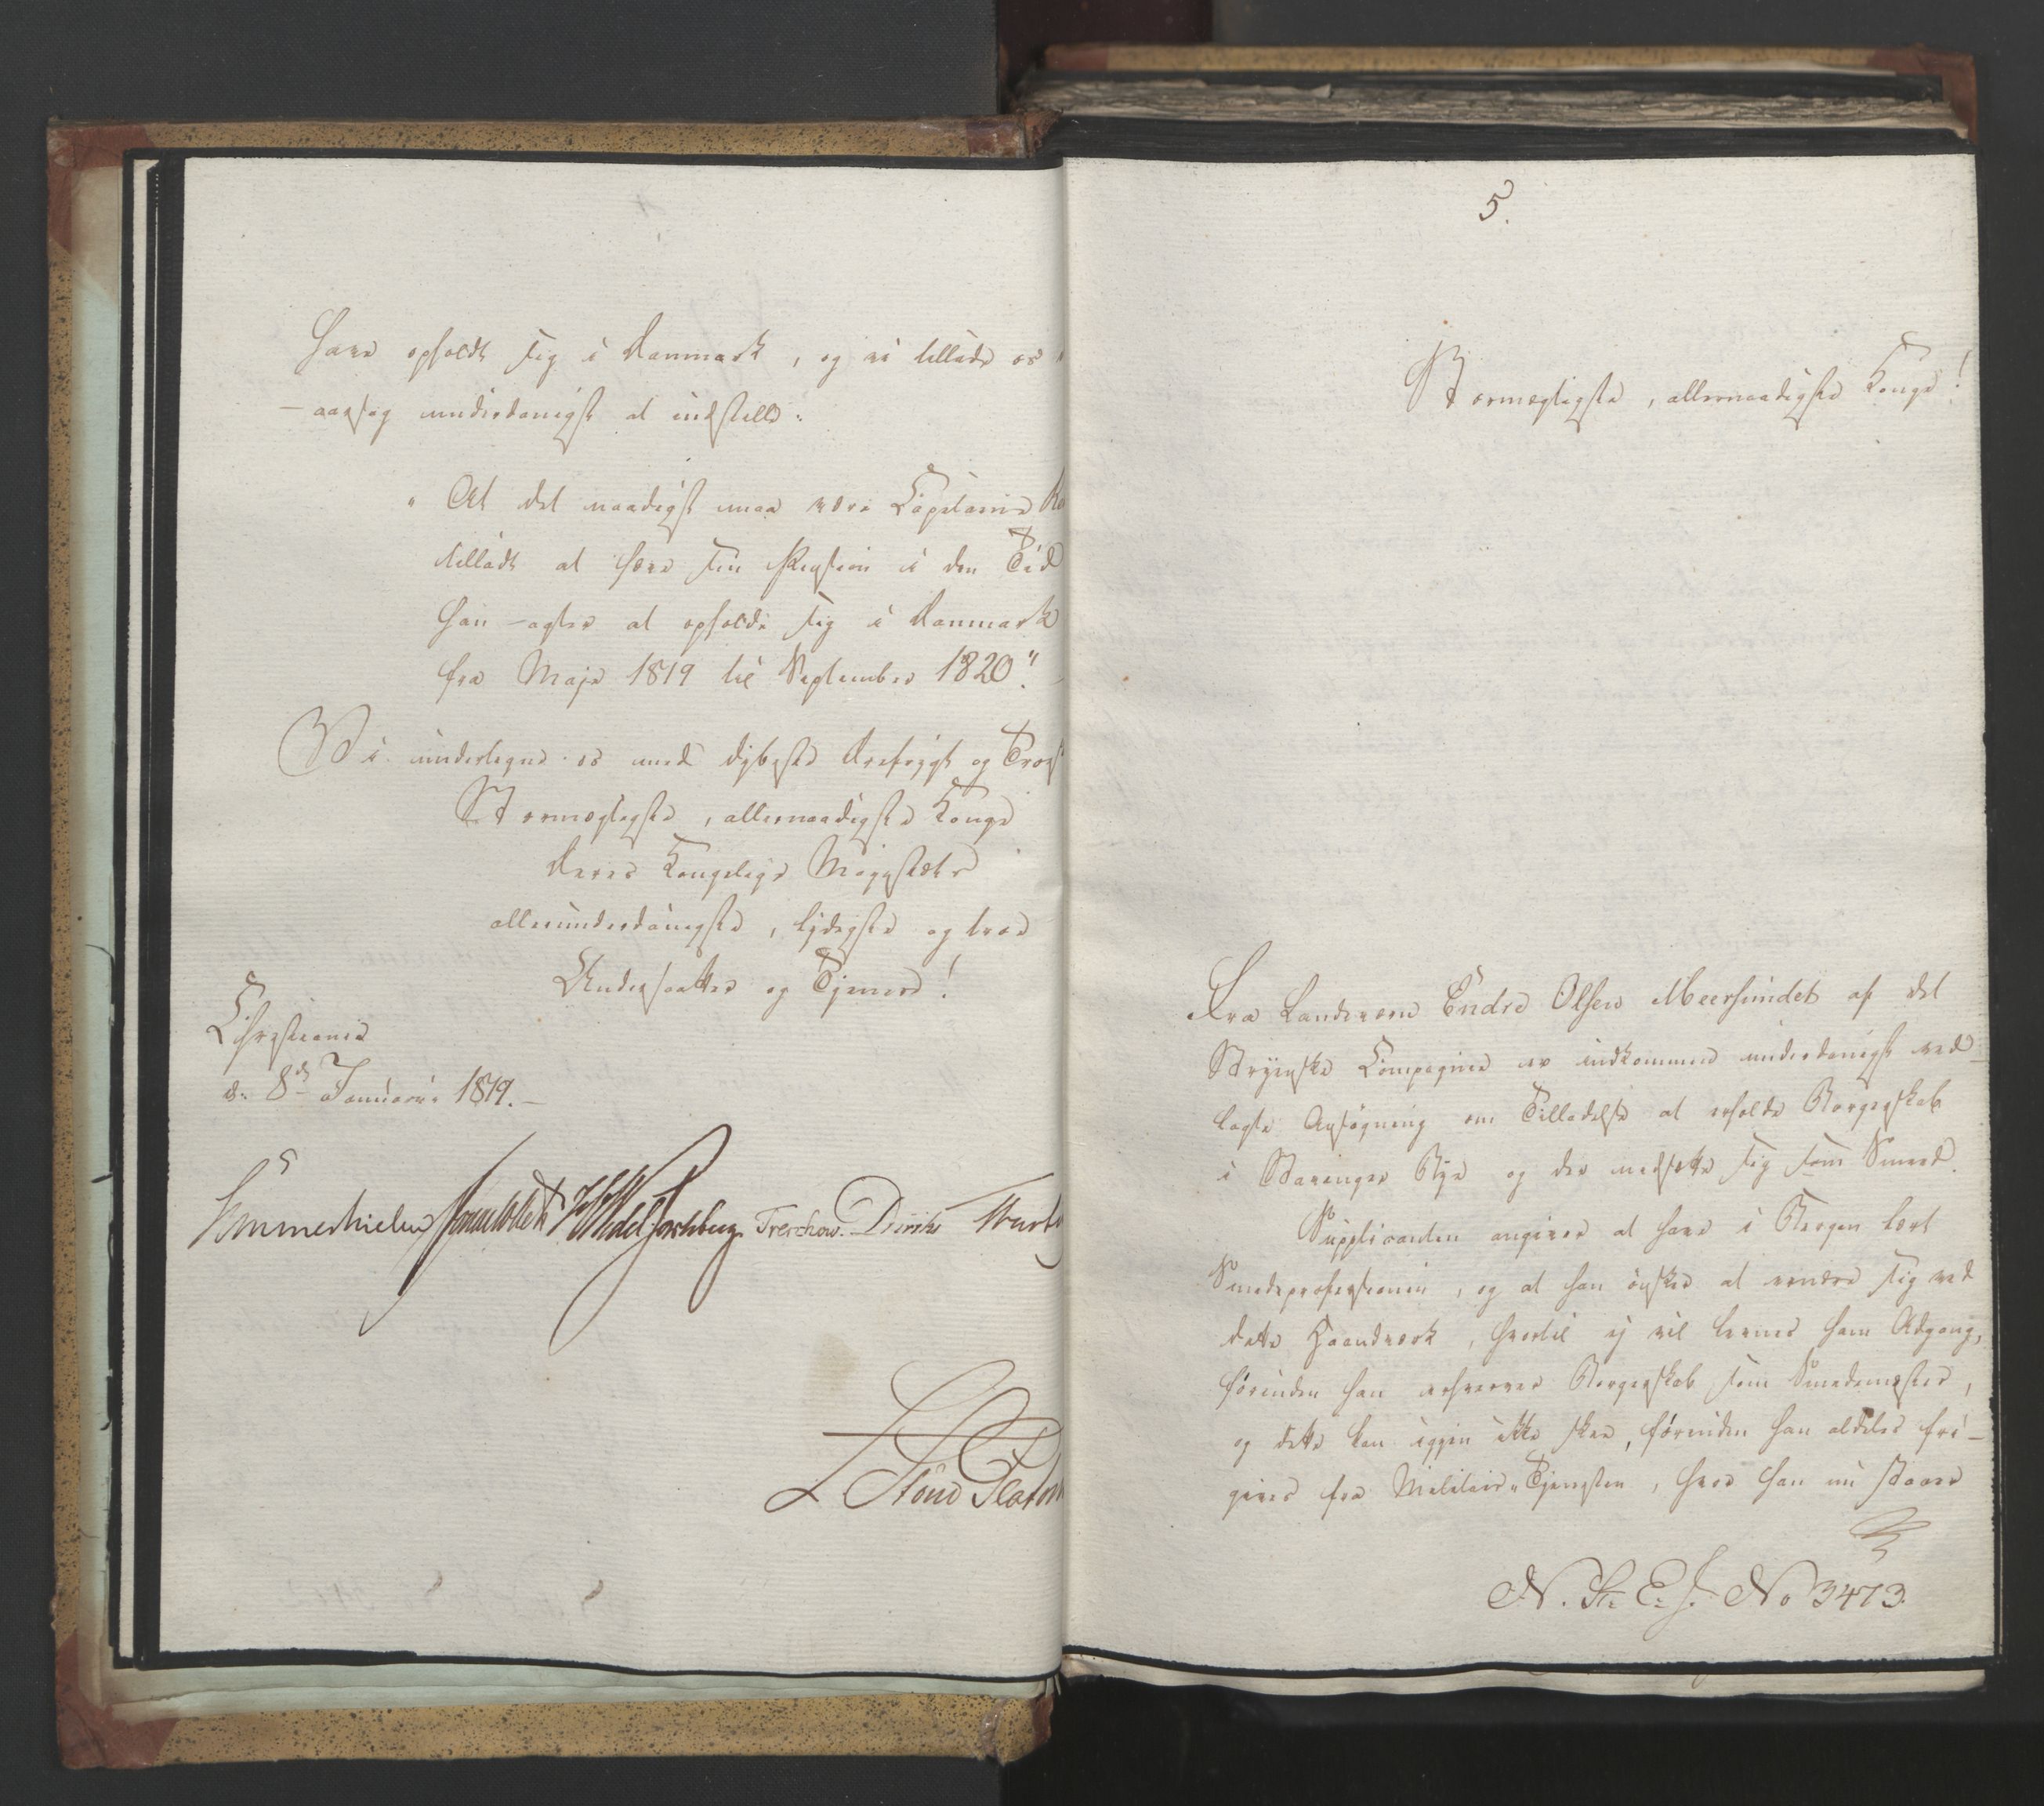 have opholdt sig i Danmark, og vi tillade os
aarsag underdanigst at indstille:
"At det naadigst maa være Capitaine
tilladt at hæve sin Pension i den Tid
han agter at opholde sig i Danmark
fra Maje 1819 til September 1820".
Vi undertegne os med dybeste Ærefrygt og
Stormægtigste, allernaadigste Konge
Deres Kongelige Majestæts
allerunderdanigste, lydigste og troe
Undersaatter og Tjenere!
Christiania
d: 8de Januari 1819.
Sommerhielm Wedel Jarlsberg Treschow Diriks
5.
Stormægtigste, allernaadigste Konge!
Fra Landeværn Endre Olsen Meersundet af det
Stryenske Compagnie er indkommen underdanigst ved-
lagte Ansøgning om Tilladelse at erholde Borgerskab
i Stavanger Bye og der nedsætte sig som Smed.
Supplicanten angiver at have i Bergen lært
Smedeprofessionen, og at han ønsker at ernære sig ved
dette Haandværk, hvortil ej vil levnes ham Adgang,
førinden han erhverver Borgerskab som Smedemester,
og dette kan igjen ikke skee, førinden han aldeles fri-
gives fra Militair-Tjenesten, hvor han nu staaer
N. St. E. J. No 3473.